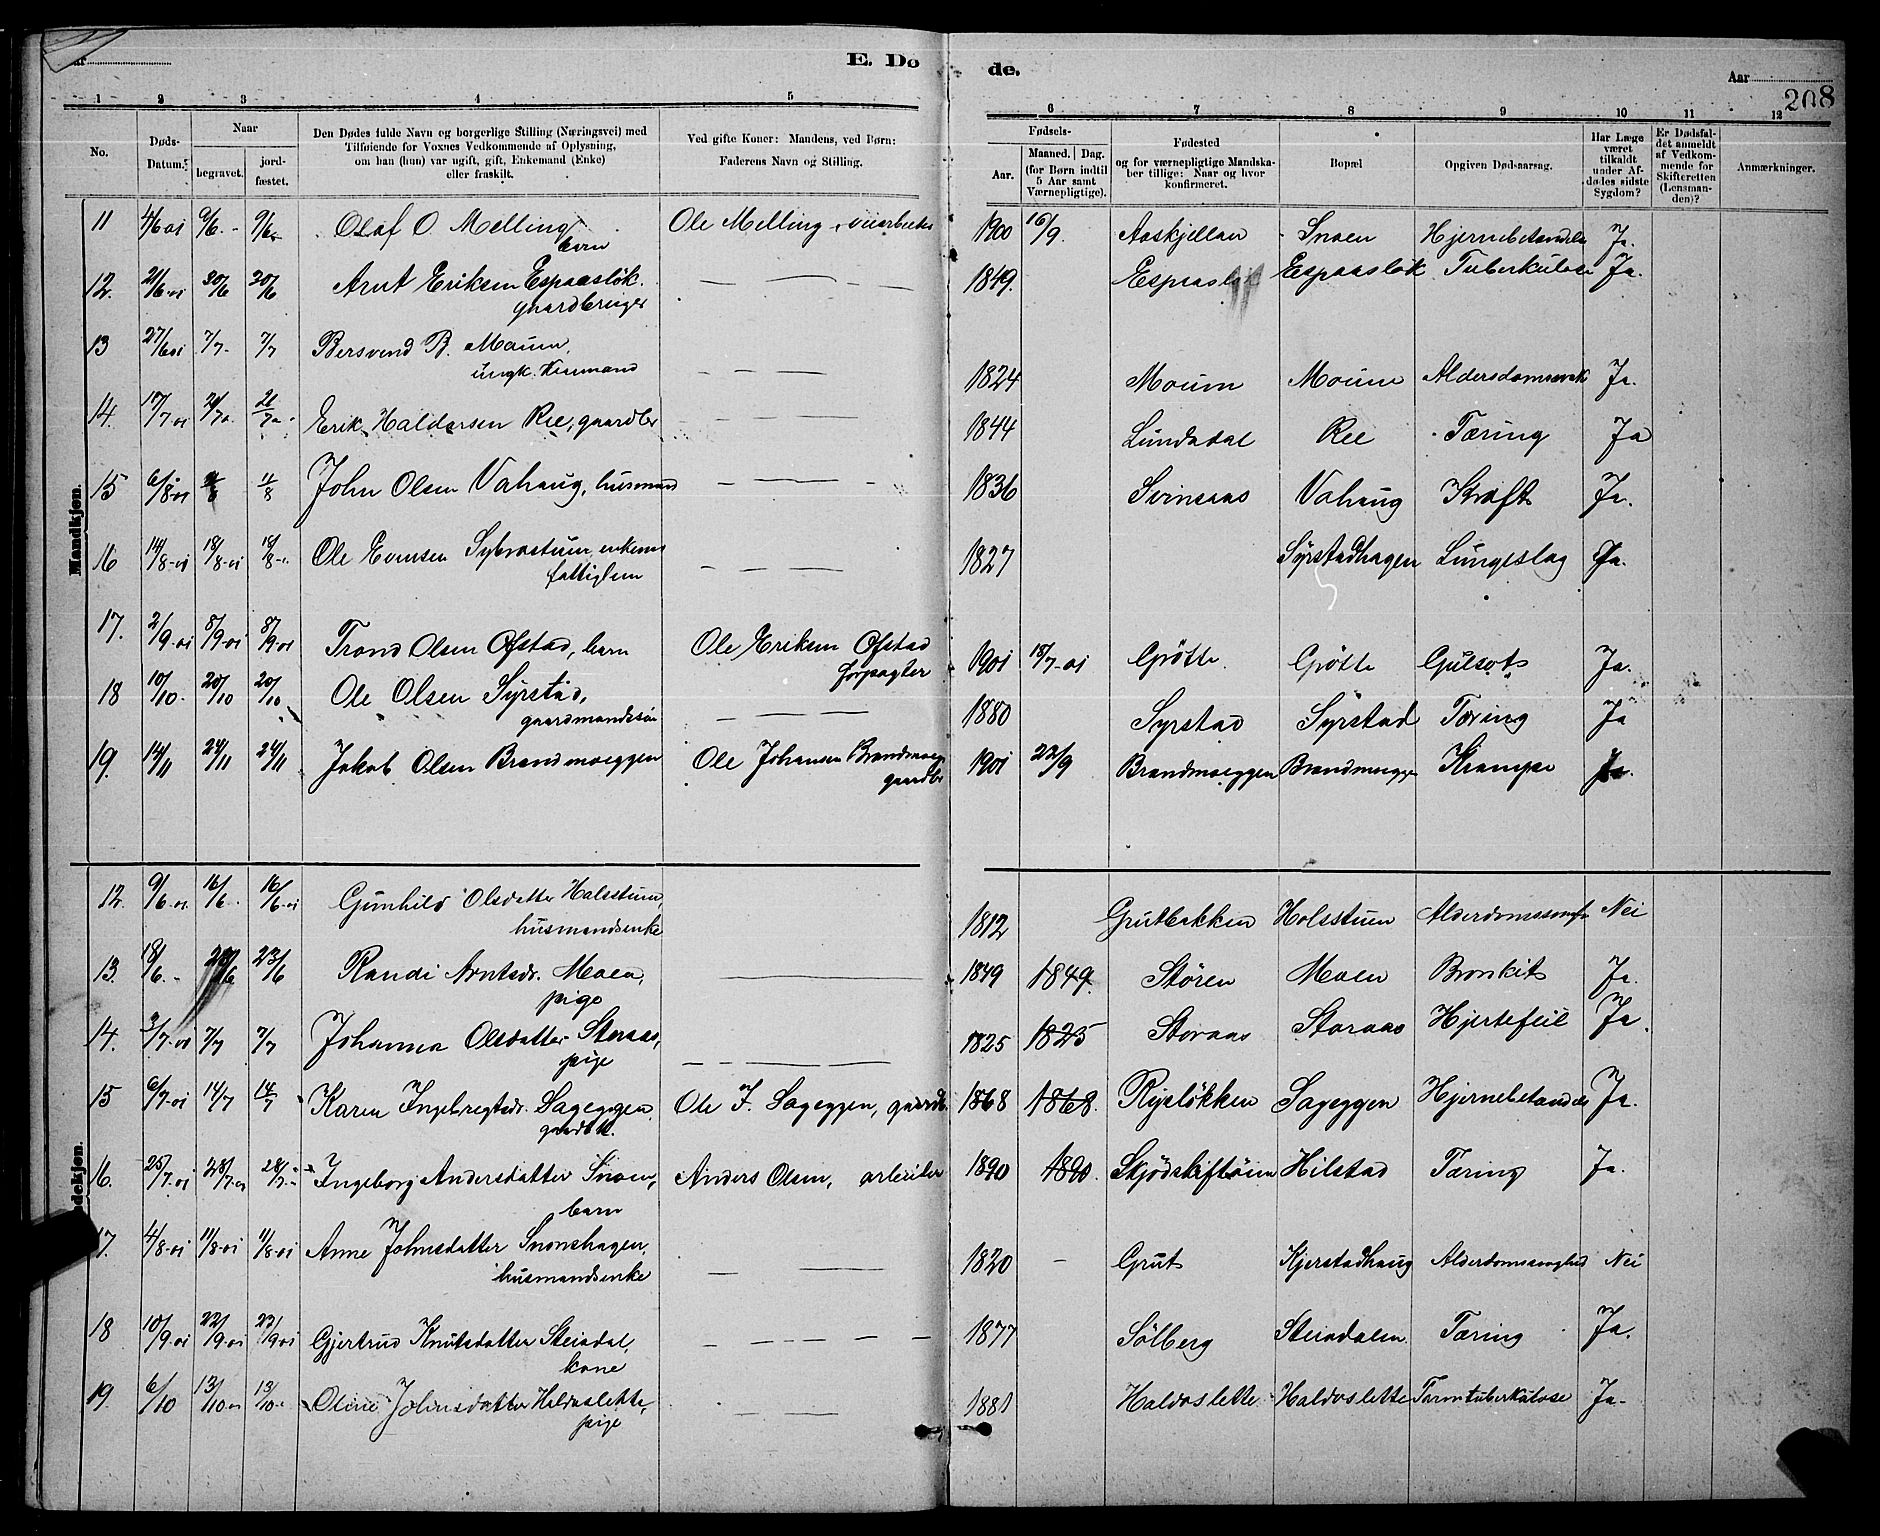 E. Dø de.
Aar
Aar
208
1 2 3 4 5 6 7 8 9 10 11 12
No.
Døds-Datum.
Naar
begravet.
jord-fæstet.
Den Dødes fulde Navn og borgerlige Stilling (Næringsvei) med
Tilføiende for Voxnes Vedkommende af Oplysning,
om han (hun) var ugift, gift, Enkemand (Enke)
eller fraskilt.
Ved gifte Koner: Mandens, ved Børn:
Faderens Navn og Stilling.
Fødsels-
Aar.
Maaned. Dag.
(for Børn indtil
5 Aar samt
Værnepligtige).
Fødested
og for værnepligtige Mandska-
ber tillige: Naar og hvor
konfirmeret.
Bopæl
Opgiven Dødsaarsag.
Har Læge
været
tilkaldt
under Af-
dødes sidste
Sygdom?
Er Dødsfal-
det anmeldt
af Vedkom-
mende for
Skifteretten
(Lensman-
den)?
Anmærkninger.
Mandkjøn.
11 4/6 01 9/6 - 9/6 Olaf O. Melling barn Ole Melling, veiarbeider 1900 16/9. Aaskjellan Snoen Hjernebetændelse Ja.
12. 21/6-01 30/6 30/6 Arnt Eriksen Espaasløk. gaardbruger 1849. Espaasløk Espaasløk Tuberkulose Ja.
13 27/6 01 7/7- 7/7 Bersvend B. Moum, ungk. 1824 Moum Moum Ja.
14. 17/7 01 Erik Haldorsen Ree, gaardbr 1844 Lundadal Ree Tæring Ja
15 6/8-01 11/8 John Olsen Vahaug, husmand 1836 Svinsaas Vahaug Kræft Ja.
16 14/8-01 18/8-01 18/8- Ole fattiglem 1827 Syrstadhagen Lungeslag Ja.
17. 2/9-01 8/9-01 8/9 01 Trond Olsen Øfstad, barn Ole Eriksen Øfstad forpagter 1901 18/7-01 Grøtte. Grøtte Gulsot Ja.
18 10/10. 20/10 20/10 Ole Olsen Syrstad, gaardmandssøn 1880 Syrstad Syrstad Tæring Ja
19. 14/11 24/11 24/11 Jakob Olsen Brandmoeggen Ole Johansen gaardbr 1901 22/9 Brandmoeggen Krampe Ja.
12. 9/6-01 16/6. 16/6-01 Gunhild Olsdatter Halsstuen, husmandsenke 1812 Grutbakken Holsstuen Nei
13. 18/6. - 23/6 Randi Arntsdr. Moen, pige 1849 1849. Støren Moen Bronkit Ja.
14. 3/7-01 7/7 7/7 Johanna Olsdatter Storaas, pige 1825 1825 Storaas Storaas Hjertefeil Ja.
15 6/7-01 14/7 14/7 Karen Ingebregtsdr. Sageggen, gaardbk. Ole J. Sageggen, gaardb. 1868 1868. Rysløkken Sageggen Ja.
16. 25/7-01 28/7-01 28/7- Ingeborg Andersdatter Snoen, barn Anders Olsen, arbeider 1890 1890. Hilstad Tæring Ja.
17. 4/8-01 11/8-01 11/8-01 Anne Johnsdatter Snoushagen, husmandsenke 1820 - Grut Kjerstadhaug Nei
18 10/9-01 22/9-01 Gjertrud Knutsdatter Steindal, kone 1877 Sølberg Steindalen Tæring Ja.
19. 6/10 13/10-01 13/10- Oline Johnsdatter Haldoslette, pige 1881 Haldoslette Haldoslette Tarmtuberkulose Ja-